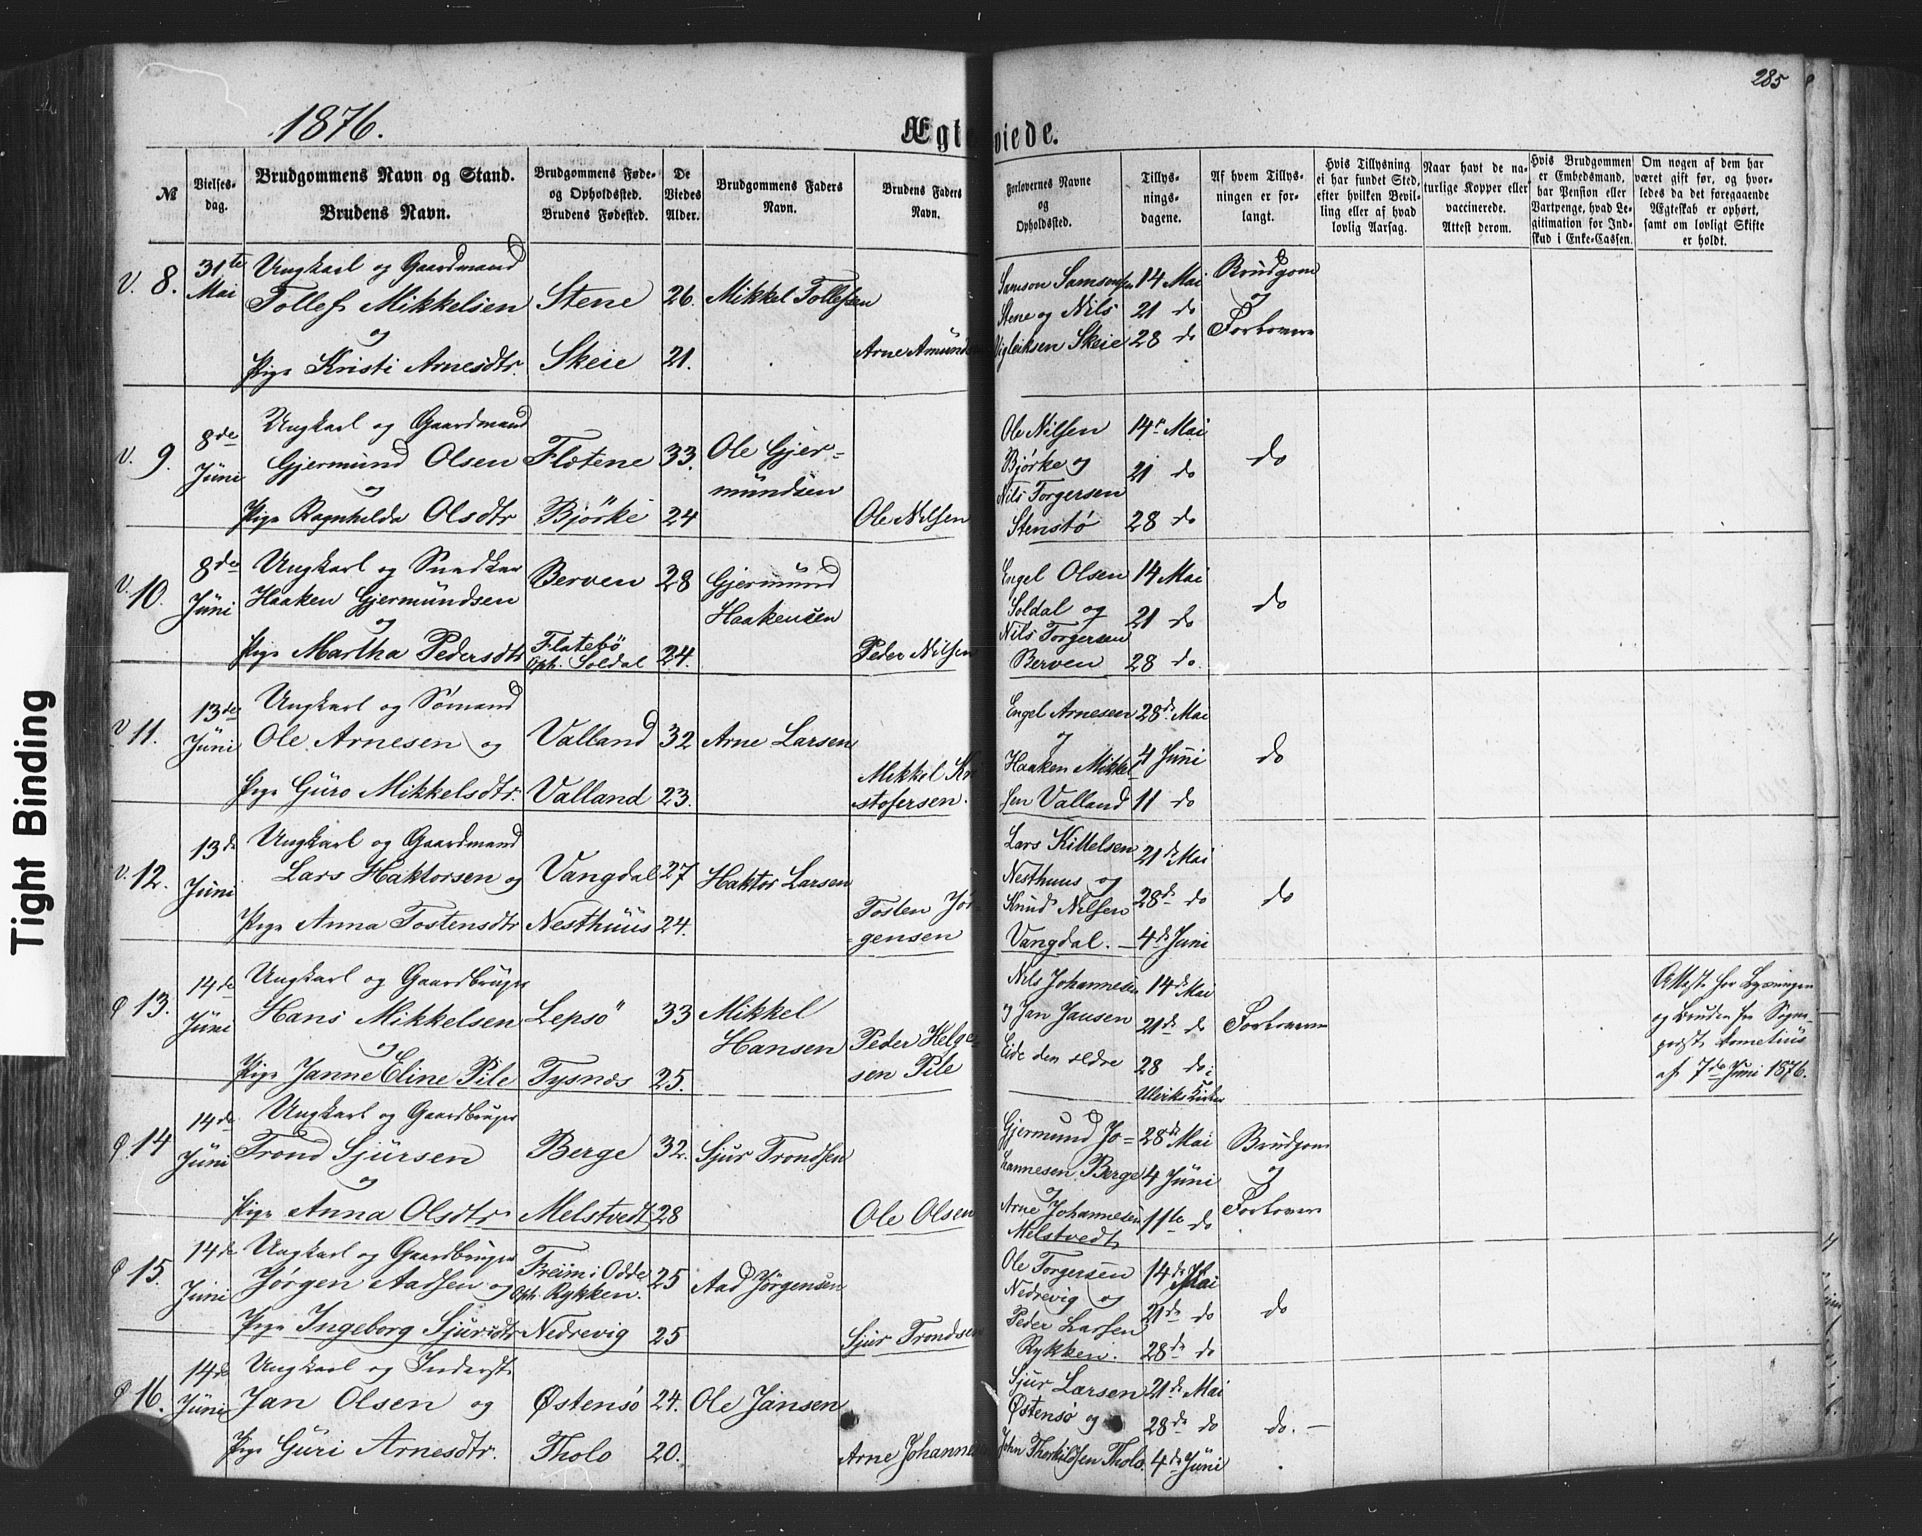 285
1876.
Ægteviede.
№
Vielses-
dag.
Brudgommens Navn og Stand.
Brudens Navn.
Brudgommens Føde-
og Opholdssted.
Brudens Fødested.
De
Viedes
Alder.
Brudgommens Faders
Navn.
Brudens Faders
Navn.
Forlovernes Navne
og
Opholdssted.
Tillys-
nings-
dagene.
Af hvem Tillys-
ningen er for-
langt.
Hvis Tillysning
ei har fundet Sted,
efter hvilken Bevil-
ling eller af hvad
lovlig Aarsag.
Naar havt de na-
turlige Kopper eller
vaccinerede.
Attest derom.
Hvis Brudgommen
er Embedsmand,
har Pension eller
Vartpenge, hvad Le-
gitimation for Ind-
skud i Enke-Cassen.
Om nogen af dem har
været gift før, og hvor-
ledes da det foregaaende
Ægteskab er ophørt,
samt om lovligt Skifte
er holdt.
V. 8.
31te
Mai
Ungkarl og Gaardmand
Tollef Mikkelsen
og
Pige Kristi Arnesdtr.
Stene
Skeie
26.
21.
Mikkel Tollefsen
Arne Amunds
Samson Samsonsen
Stene og Nils
Vigleiksen Skeie
14 Mai
21 do
28 do
Brudgom
og
Forlovere
V. 9.
8de
Juni
Ungkarl og Gaardmand
Gjermund Olsen
og
Pige Ragnhilda Olsdtr
Flotene
Bjørke
33.
24
Ole Gjer-
mundsen
Ole Nilsen
Ole Nilsen
Bjørke og
Nils Torgersen
Stenstø
14 Mai
21 do
28 do
do
V. 10.
8de
Juni
Ungkarl og Snedker
Haaken Gjermundsen
og
Pige Martha Pedersdtr
Berven
Flatebø
Oph. Soldal
28
24.
Gjermund
Haakensen
Peder Nilsen
Engel Olsen
Soldal og
Nils Torgersen
Berven
14 Mai
21 do
28 do.
do
V 11.
13de
Juni
Ungkarl og Sømand
Ole Arnesen og
Pige Guro Mikkelsdtr.
Valland
Valland
32
23.
Arne Larsen
Mikkel Kri
stofersen.
Engel Arnesen
og
Haaken Mikkel-
sen Valland
28de Mai
4 Juni
11 do
do
V. 12.
13de
Juni
Ungkarl og Gaardmand
Lars Haktorsen og
Pige Anna Tostensdtr
Vangdal
Nesthuus
27
24.
Haktor Larsen
Tosten Jør-
gensen
Lars Kittelsen
Nesthuus og
Knud Nilsen
Vangdal.
21de Mai
28de do
4de Juni
do
Ø 13.
14de
Juni
Ungkarl og Gaardbruger
Hans Mikkelsen
og
Pige Janne Eline Pile
Lepsø
Tysnæs
33
25.
Mikkel
Hansen
Peder Helge-
sen Pile
Nils Johannesen
og Jan Jansen
Eide den ældre
14de Mai
21de do
28 do i
Ulviks Kirke
Forlovere
Attest for Lysningen
og Bruden fra Sogne-
præst
af 7de Juni 1876.
Ø 14
14de
Juni
Ungkarl og Gaardbruger
Trond Sjursen
og
Pige Anna Olsdtr
Berge
Melstvedt
32.
28
Sjur Trondsen
Ole Olsen
Gjermund Jo-
hannesen Berge
og
Arne Johannesen
Melstvedt
28de Mai
4 Juni
11te do
Brudgom
og
Forlovere
Ø 15.
14de
Juni
Ungkarl og Gaardbruger
Jørgen Aadsen og
Pige Ingeborg Sjursdtr
Freim i Odde
Oph. Rykken.
Nedrevig
25
25
Aad Jørgensen
Sjur Trondsen
Ole Torgersen
Nedrevig og
Peder Larsen
Rykken.
14de Mai
21de do
28de do
do
Ø 16.
14de
Juni
Ungkarl og Inderst
Jan Olsen og
Pige Guri Arnesdtr.
Østensø
Tholo
24.
20.
Ole Jansen
Arne Johannes
Sjur Larsen
Østensø og
John Thorkildsen Tholo.
21de Mai
28de do
4de Juni
do.
Tight Binding